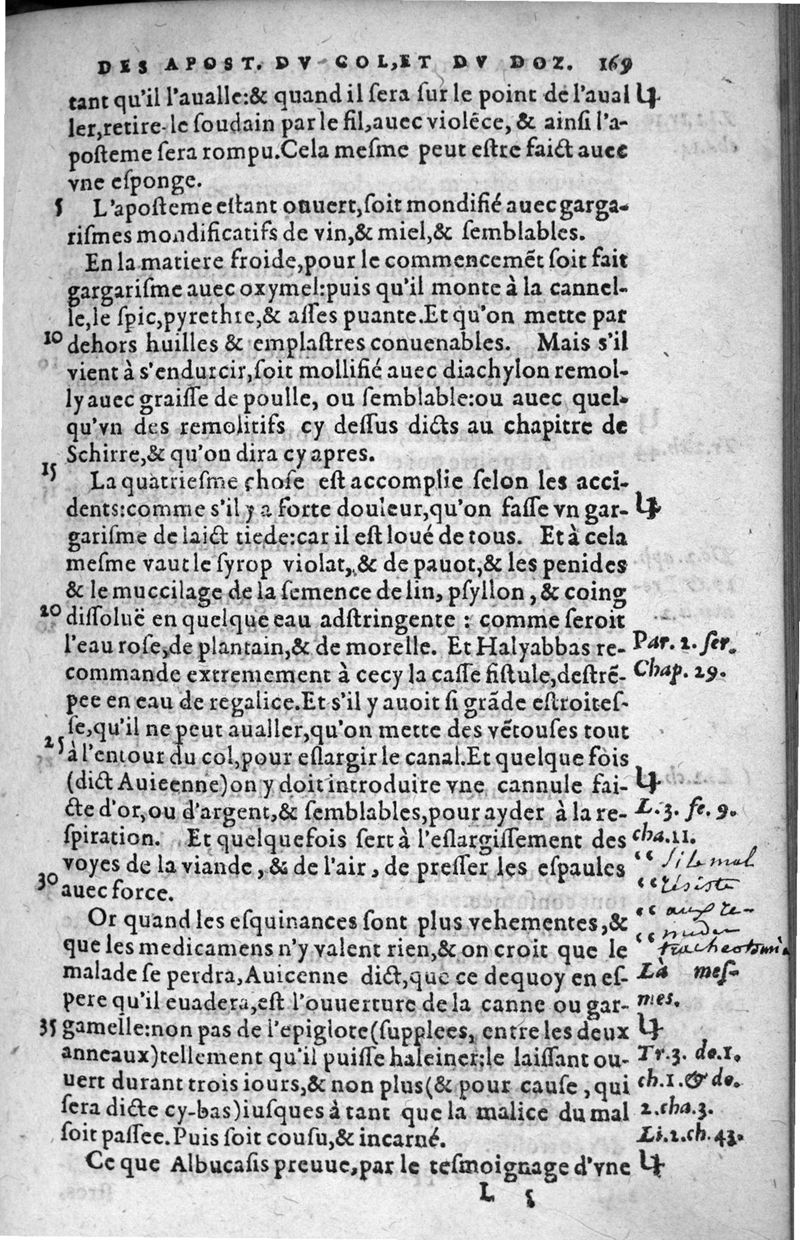 DES APOST. DV COL, ET DV DOZ. 169
tant qu'il l'aualle:& quand il ſera ſur le point de l'aual
ler,retire-le ſoudain par le fil,auec violẽce, & ainſi l'a-
poſteme ſera rompu.Cela meſme peut eſtre faict auec
vne eſponge.
5 L'apoſteme eſtant ouuert,ſoit mondifié auec garga-
riſmes mondificatifs de vin,& miel,& ſemblables.
En la matiere froide,pour le commencemẽt ſoit fait
gargariſme auec oxymel:puis qu'il monte à la cannel-
le,le ſpic,pyrethre,& aſſes puante.Et qu'on mette par
10 dehors huilles & emplaſtres conuenables. Mais s'il
vient à s'endurcir,ſoit mollifié auec diachylon remol-
ly auec graiſſe de poulle, ou ſemblable:ou auec quel-
qu'vn des remolitifs cy deſſus dicts au chapitre de
Schirre,& qu'on dira cy apres.
15 La quatrieſme choſe eſt accomplie ſelon les acci-
dents:comme s'il y a forte douleur,qu'on faſſe vn gar-
gariſme de laict tiede:car il eſt loué de tous. Et à cela
meſme vaut le ſyrop violat,& de pauot,& les penides
& le muccilage de la ſemence de lin, pſyllon, & coing
20 diſſoluë en quelque eau adſtringente : comme ſeroit
l'eau roſe,de plantain,& de morelle. Et Halyabbas re- Par. 2. ſer.
commande extremement à cecy la caſſe fiſtule,deſtrẽ- Chap. 29.
pee en eau de regalice.Et s'il y auoit ſi grãde eſtroiteſ-
ſe,qu'il ne peut aualler,qu'on mette des vẽtouſes tout
25 à l'entour du col,pour eſlargir le canal.Et quelque fois
(dict Auicenne)on y doit introduire vne cannule fai-
cte d'or,ou d'argent,& ſemblables,pour ayder à la re- L. 3. fe. 9.
ſpiration. Et quelquefois ſert à l'eſlargiſſement des cha.11.
voyes de la viande, & de l'air, de preſſer les eſpaules “ Si le mal
30 auec force. “ resiste
Or quand les eſquinances ſont plus vehementes,& “ aux re-
que les medicamens n'y valent rien,& on croit que le “ tracheotomie
malade ſe perdra,Auicenne dict,que ce dequoy en eſ- Là meſ-
pere qu'il euadera,eſt l'ouuerture de la canne ou gar- mes.
35 gamelle:non pas de l'epiglote(ſupplees, entre les deux
anneaux)tellement qu'il puiſſe haleiner:le laiſſant ou- Tr.3. do.1.
uert durant trois iours,& non plus(& pour cauſe, qui ch.1.& do.
ſera dicte cy-bas)iuſques à tant que la malice du mal 2.cha.3.
ſoit paſſee.Puis ſoit couſu,& incarné. Li.2.ch. 43.
Ce que Albucaſis preuue,par le teſmoignage d'vne
L 5